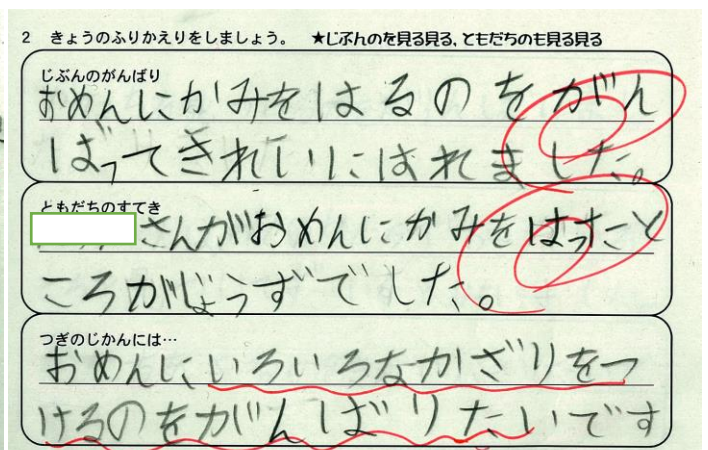 2 きょうのふりかえりをしましょう。 ★じぶんのを見る見る,ともだちのも見る見る
じぶんのがんばり
おめんにかみをはるのをがん
ばってきれいにはれました。
ともだちのすてき
さんがおめんにかみをはったこと
ころがじょうずでした。
つぎのじかんには…
おめんにいろいろなかざりをつ
けるのをがんばりたいです